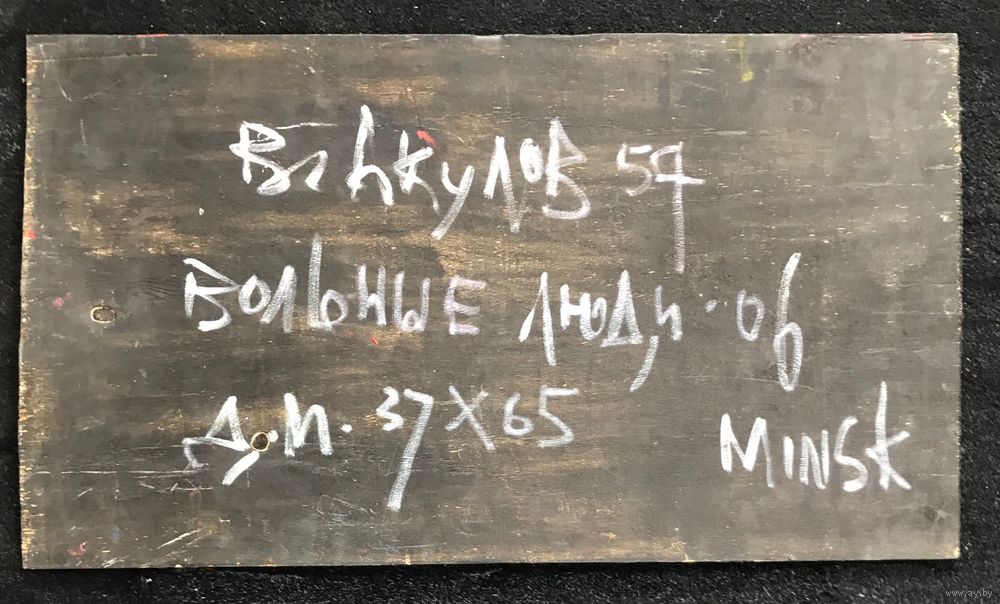 Вл Акулов 54
Вольные люди · 06
Д.М. 37X65 MINSK
www.ay.by